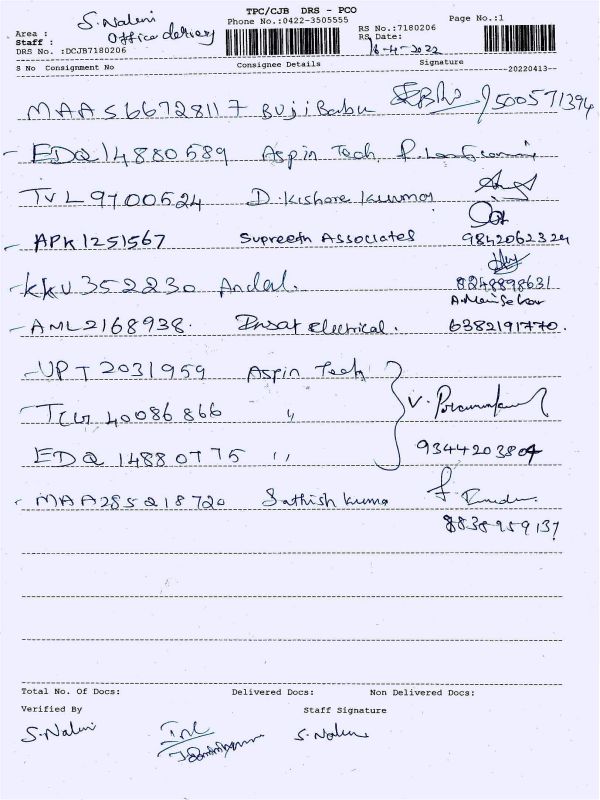 TPC/CJB DRS - PCO
S. Nalini
Office delivery
Phone No.:0422-3505555
Page No.:1
Area :
Staff :
DRS No. :DCJB7180206
RS No.:7180206
RS Date:
16-4-2022
S No Consignment No Consignee Details Signature
--20220413--
MAA566728117 Buji Babu 9500571394
EDQ14880589 Aspin Tech
TVL9700524 D. Kishore Kumar
APK1251567 Supreeth Associates 9842062324
KKU352230 Andal. 8248898631
AML2168938. Insat Electrical. 6382191770.
UPT2031959 Aspin Tech
TCG40086866 "
EDQ14880775 " 9344203804
MAA285218720 Sathish Kuma
8838959137
Total No. Of Docs: Delivered Docs: Non Delivered Docs:
Verified By Staff Signature
S. Nalini S. Nalini